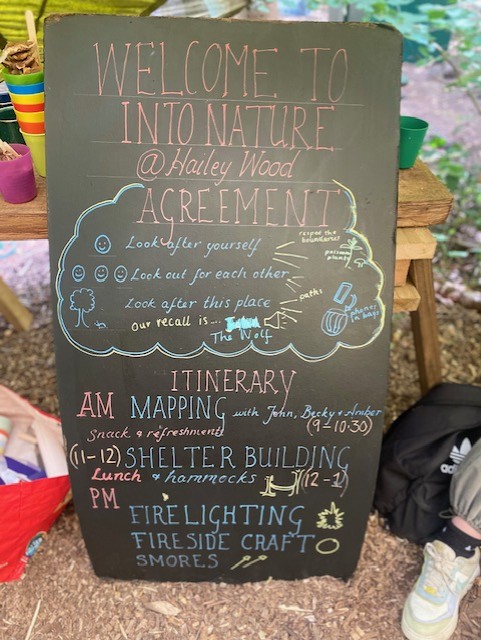 WELCOME TO
INTO NATURE
@ Hailey Wood
AGREEMENT
respect the boundaries
Look after yourself
poisonous plants
Look out for each other
paths
Look after this place
phones in bags
our recall is....
The Wolf
ITINERARY
AM MAPPING with John, Becky & Amber
Snack & refreshments (9-10:30)
(11-12) SHELTER BUILDING
Lunch & hammocks (12-1)
PM
FIRELIGHTING
FIRESIDE CRAFT
SMORES
adidas